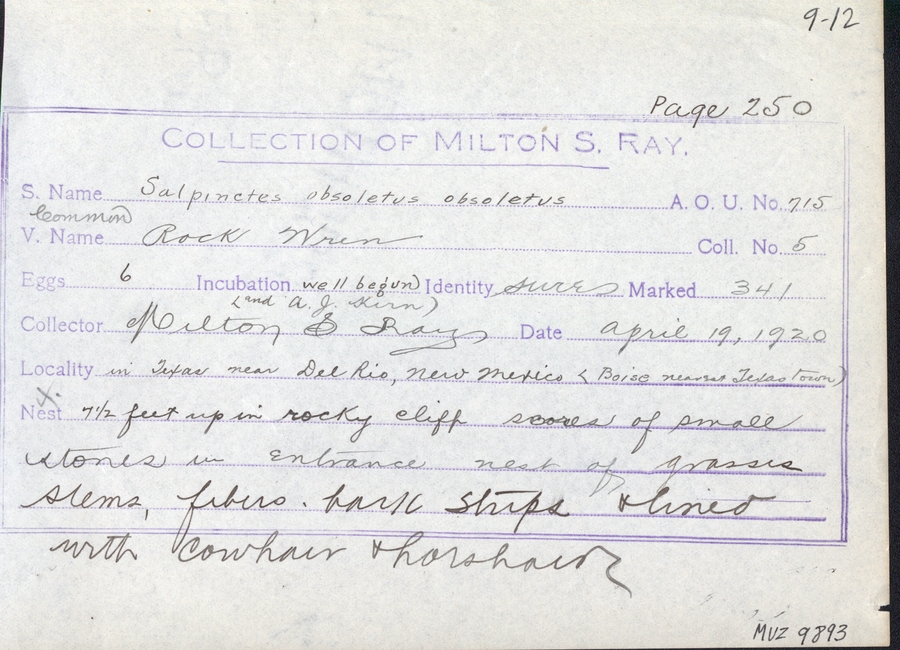 9-12
Page 250
COLLECTION OF MILTON S. RAY.
S. Name Salpinctes obsoletus obsoletus A. O. U. No. 715
Common
V. Name Rock Wren Coll. No. 5
Eggs 6 Incubation well begun Identity sure Marked 341
(and A. J. Kirn)
Collector Milton S Ray Date april 19, 1920
Locality in Texas near Del Rio, New Mexico (Boise nearest Texas town)
Nest 7½ feet up in rocky cliff scores of small
stones in entrance nest of grasses
stems, fibers. bark strips & lined
with cowhair & horshair
MVZ 9893